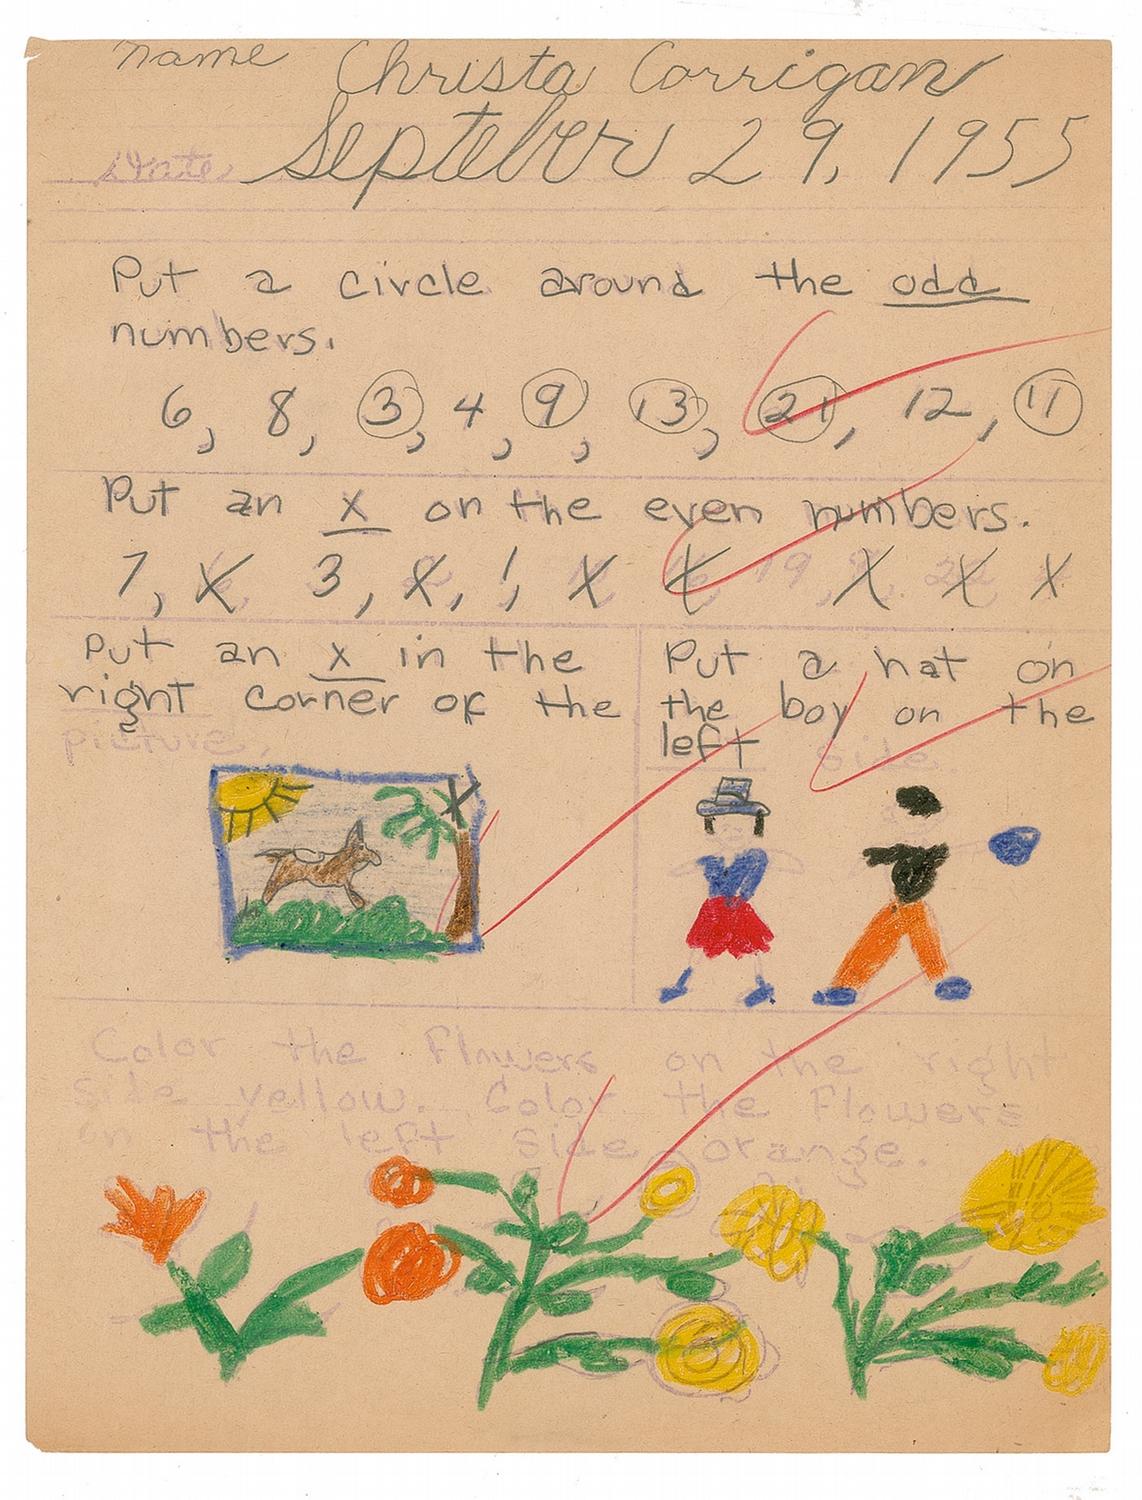 name Christa Corrigan
Date Septeber 29, 1955
Put a circle around the odd
numbers.
6, 8, 3, 4, 9, 13, 21, 12, 11
Put an x on the even numbers.
7, X 3, X, 1, X X 19, X X X
Put an x in the
right corner of the
picture.
X
Put a hat on
the boy on the
left side.
Color the Flowers on the right
side yellow. Color the Flowers
on the left side orange.